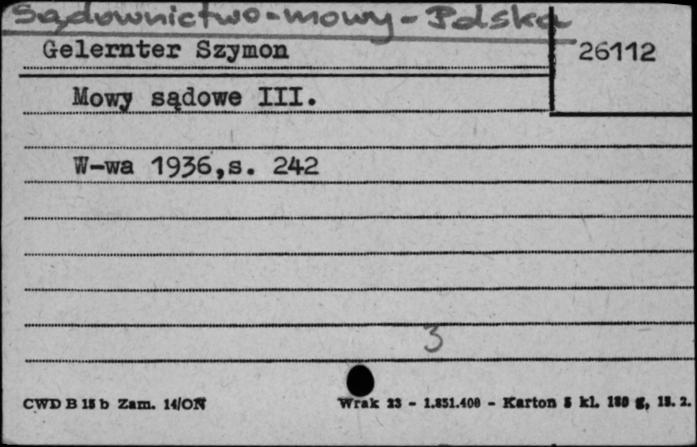 Sądownictwo-mowy-Polska
Gelernter Szymon
26112
Mowy sądowe III.
W-wa 1936,s. 242
3
CWD B 15 b Zam. 14/ON
Wrak 23 - 1.851.400 - Karton 5 kl. 180 g, 18. 2.